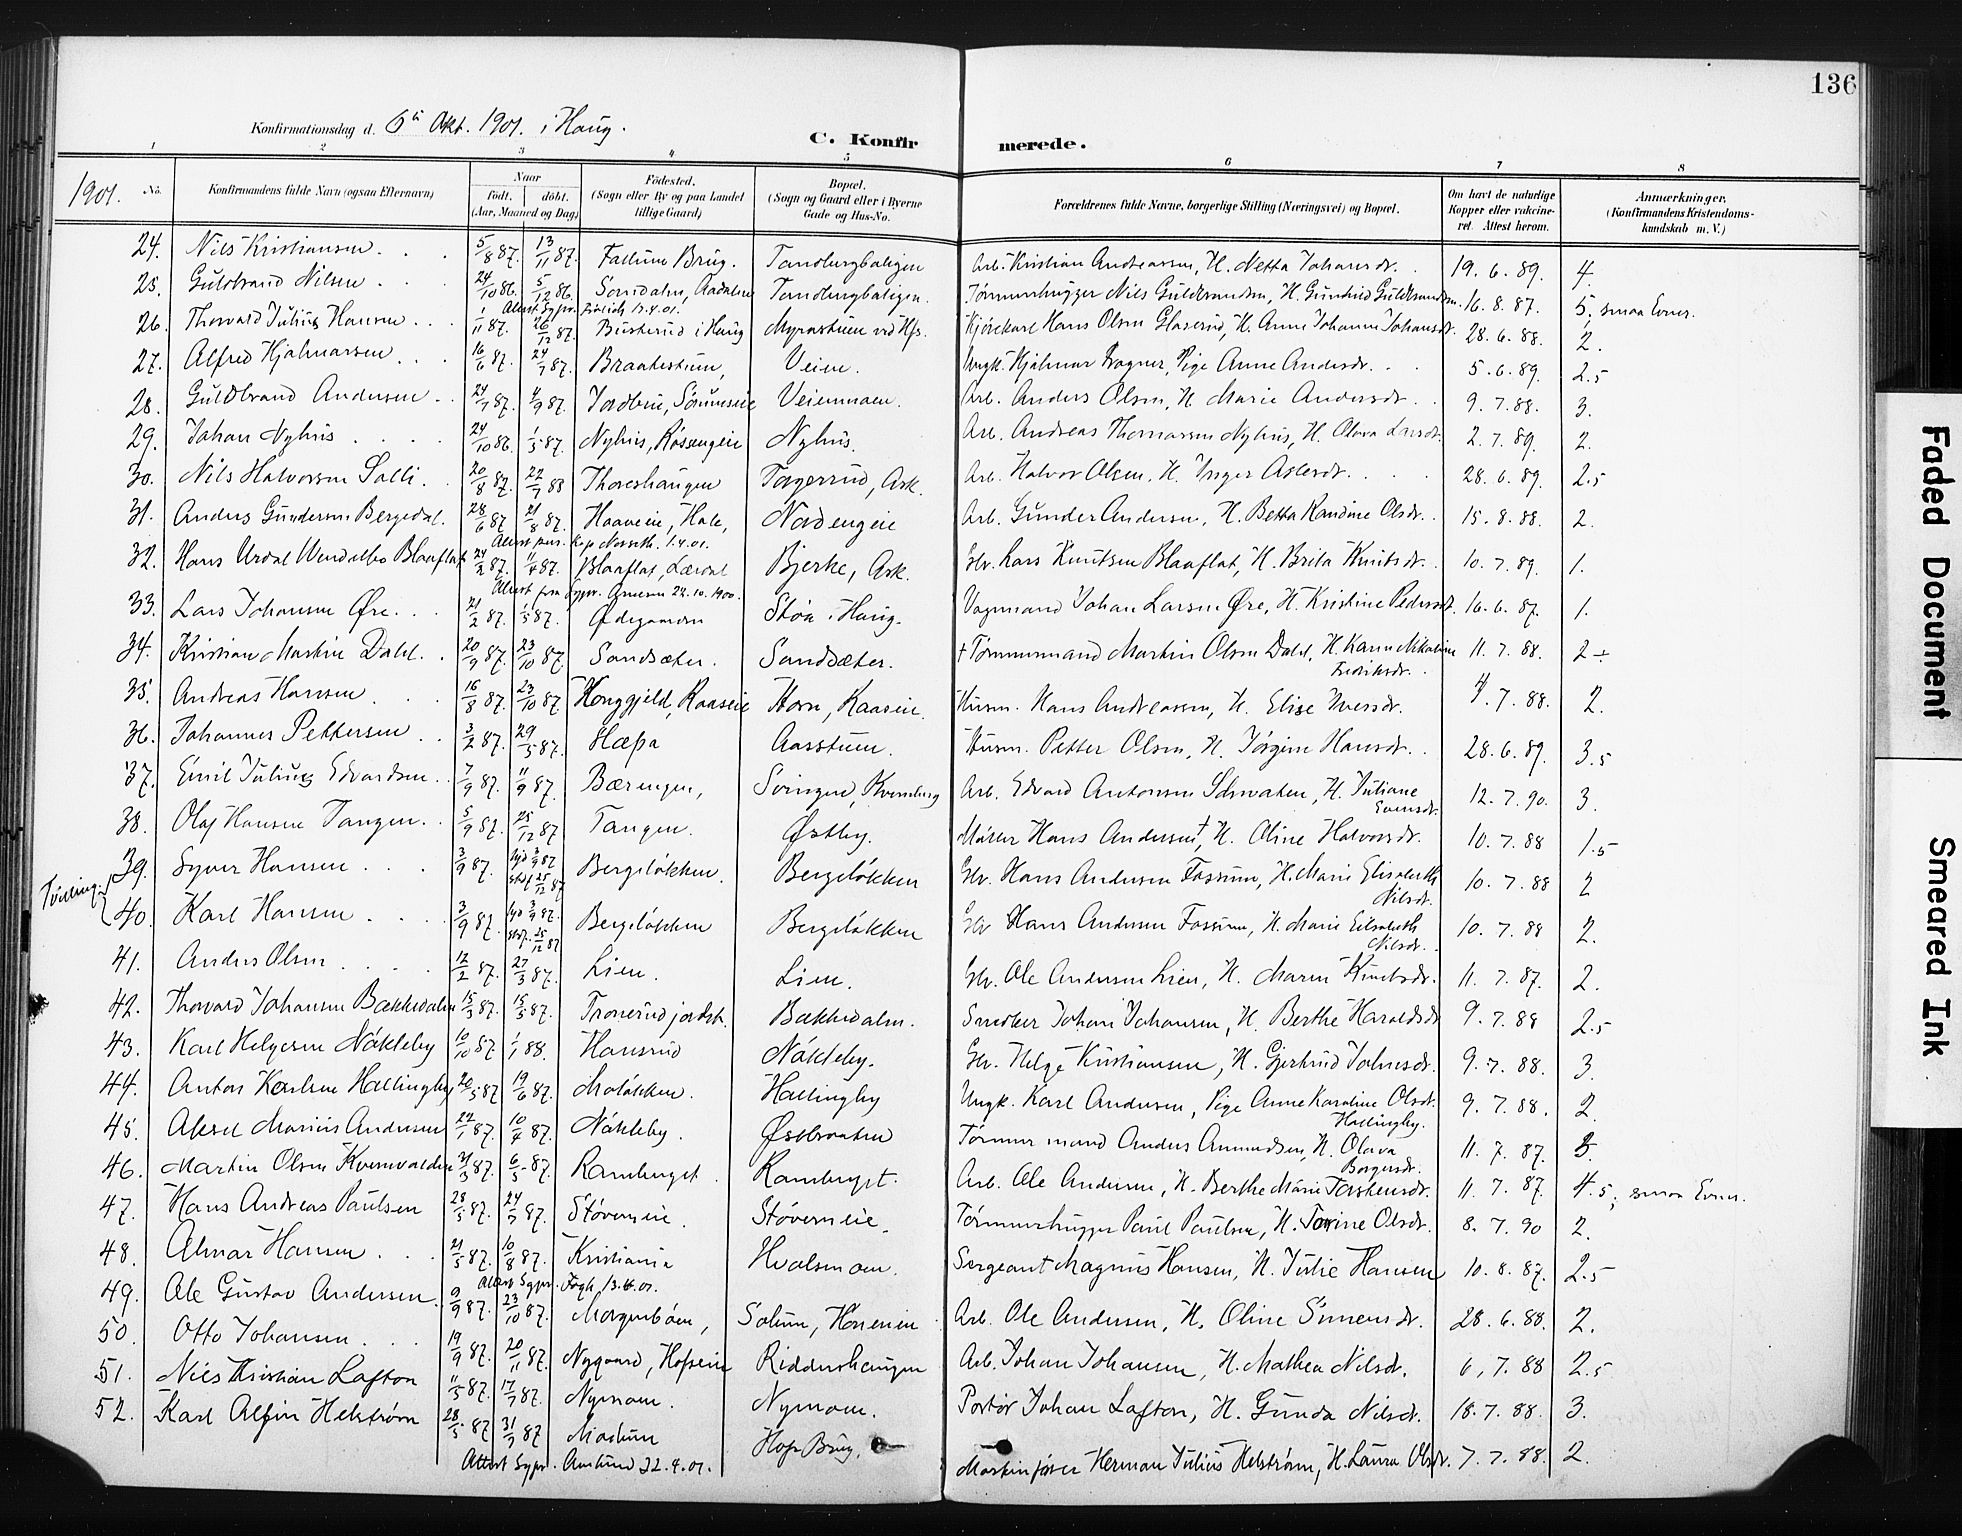 136
Konfirmationsdag d. 6te Okt. 1901. i Haug.
C. Konfirmerede.
1 2 3 4 5 6 7 8
1901. No. Konfirmandens fulde Navn (ogsaa Efternavn) Naar født, døbt. (Aar, Maaned og Dag) Fødested. (Sogn eller By og paa Landet tillige Gaard) Bopæl. (Sogn og Gaard eller i Byerne Gade og Hus-No. Forældrenes fulde Navne, borgerlige Stilling (Næringsvei) og Bopæl. Om havt de naturlige Kopper eller vakcineret. Attest herom. Anmærkninger. (Konfirmandens Kristendomskundskab m. V.)
24. Nils Kristiansen. 5/8 87. 13/11 87. Fallum Brug. Tandbergbakigen Arb. Kristian Andreassen, H. Netta Johansdr. 19.6.89. 4.
25. Guldbrand Nilsen 24/10 86. 5/12 86. Sonsdalen, Aadalen Tandbergbakigen. Tømmerhugger Nils Guldbrandsen, H. Gunhild Guldbrandsdr. 16.8.87. 5, smaa Evner.
26. Thorvard Julius Hansen 1/11 87. 26/12 87. Busterud i Haug Myrastuen ved Hfs. Kjørekarl Hans Olsen Glaserud, H. Anne Johanne Johansdr. 28.6.88. 2.
27. Alfred Hjalmarsen 16/6 87. 24/7 87. Braatestuen, Veien. Ungk. Hjalmar Wagner, Pige Anne Andersdr. 5.6.89. 2.5
28. Guldbrand Andersen 24/7 87. 4/9 87. Jordbrue, Sørumseie Veienmoen. Arb. Anders Olsen, H. Marie Andersdr. 9.7.88. 3.
29. Johan Nyhus 24/10 86. 1/5 87. Nyhus, Røssengeie Nyhus. Arb. Andreas Thomassen Nyhus, H. Olava Larsdr. 2.7.89. 2.
30. Nils Halvorsen Solli. 20/8 87. 22/7 88 Thoreshaugen Torgerrud, Ask. Arb. Halvor Olsen, H. Inger Aslesdr. 28.6.89. 2.5
31. Anders Gundersen Bergedal. 28/6 87 21/8 87. Haaveie, Hole, Nordengeie Arb. Gunder Andersen, H. Betta Randine Olsdr. 15.8.88. 2.
32. Hans Urdal Wendelbo Blaaflat 24/2 87. 11/4 87. Blaaflat, Lærdal Bjerke, Ask. Gbr. Lars Knutsen Blaaflat, H. Brita Knutsdr. 10.7.89. 1.
33. Lars Johansen Øre. 21/2 87. 1/5 87. Ødegaarden Støa i Haug. Vognmand Johan Larsen Øre, H. Kristine Pedersdr. 16.6.87. 1.
34. Kristian Martin Dahl. 20/9 87. 23/10 87. Sandsæter. Sandsæter. † Tømmermand Martin Olsen Dahl, H. Karen Nikoline Fredriksdr. 11.7.88. 2÷
35. Andreas Hansen 16/8 87. 23/10 87 Honggjeld, Raaseie Horn, Raaseie. Husm. Hans Andreassen, H. Elise Iversdr. 4.7.88. 2.
36. Johannes Pettersen 3/2 87. 29/5 87. Hæpa Aasstuen. Husm. Petter Olsen, H. Jørgine Hansdr. 28.6.89. 3.5
37. Emil Julius Edvardsen 7/9 87. 11/9 87. Bærengen, Svingerud, Kvernberg Arb. Edvard Antonsen Solvraten, H. Juliane Evensdr. 12.7.90. 3.
38. Olaf Hansen Tangen. 5/9 87. 25/12 87 Tangen. Østby. Møller Hans Andersen †, H. Oline Halvorsdr. 10.7.88 1.5
Tvillinger
39. Syver Hansen 3/9 87. hjd 3/9 87 stdf 25/12 87 Bergsløkken Bergsløkken Gbr. Hans Andersen Fossum, H. Marie Elisabeth Nilsdr. 10.7.88 2
40. Karl Hansen 3/9 87. hjd 3/9 87. stdf. 25/12 87 Bergsløkken Bergsløkken Gbr Hans Andersen Fossum, H. Marie Elisabeth Nilsdr. 10.7.88 2.
41. Anders Olsen 12/2 87. 27/3 87. Lien. Lien. Gbr. Ole Andersen Lien, H. Maren Knutsdr. 11.7.87. 2.
42. Thorvard Johansen Bækkedalen 15/3 87. 15/5 87. Tronerud jordst. Bækkedalen. Snedker Johan Johansen, H. Berthe Haraldsdr 9.7.88 2.5
43. Karl Helgesen Nøkleby 10/10 87 1/1 88. Hansrud Nøkleby. Gbr. Helge Kristiansen, H. Gjertrud Johnesdr. 9.7.88. 3.
44. Anton Karlsen Hallingby 20/5 87 19/6 87. Moløkken. Hallingby Ungk. Karl Andersen, Pige Anne Karoline Olsdr. Hallingby. 9.7.88. 2.
45. Aksel Marius Andersen 22/1 87. 10/4 87. Nøkleby. Østbraaten Tømmermand Anders Amundsen, H. Olava Borgersdr. 11.7.87. 3.
46. Martin Olsen Kvernvolden 31/3 87. 6/5 87. Ramberget Ramberget. Arb. Ole Andersen, H. Berthe Marie Torstensdr. 11.7.87. 4.5; smaa Evner.
47. Hans Andreas Paulsen 28/5 87. 24/7 87. Støverneie. Støverneie. Tømmerhugger Paul Paulsen, H. Torine Olsdr. 8.7.90 2.
48. Almar Hansen 21/5 87. 10/8 87. Kristiania Hvalsmoen. Sergeant Magnus Hansen, H. Julie Hansen 10.8.87. 2.5
49. Ole Gustav Andersen. 9/9 87. 23/10 87. Morgenbøen, Solum, Høneneie Arb. Ole Andersen, H. Oline Simensdr. 28.6.88. 2.
50. Otto Johansen 19/9 87. 20/11 87. Nygaard, Hofseie Riddershaugen Arb. Johan Johansen, H. Mathea Nilsdr. 6.7.88 2.5
51. Nils Kristian Lafton 11/5 87. 17/7 87. Nymoen. Nymoen. Portør Johan Lafton, H. Gunda Nilsdr. 18.7.88. 3.
52. Karl Alfin Helstrøm 28/5 87 31/7 87 Mostuen Hofs Brug, Maskinfører Herman Julius Helstrøm, H. Laura Olsdr. 7.7.88. 2.
Attest Sypr. 22.4.01.
Faded Document
Smeared Ink